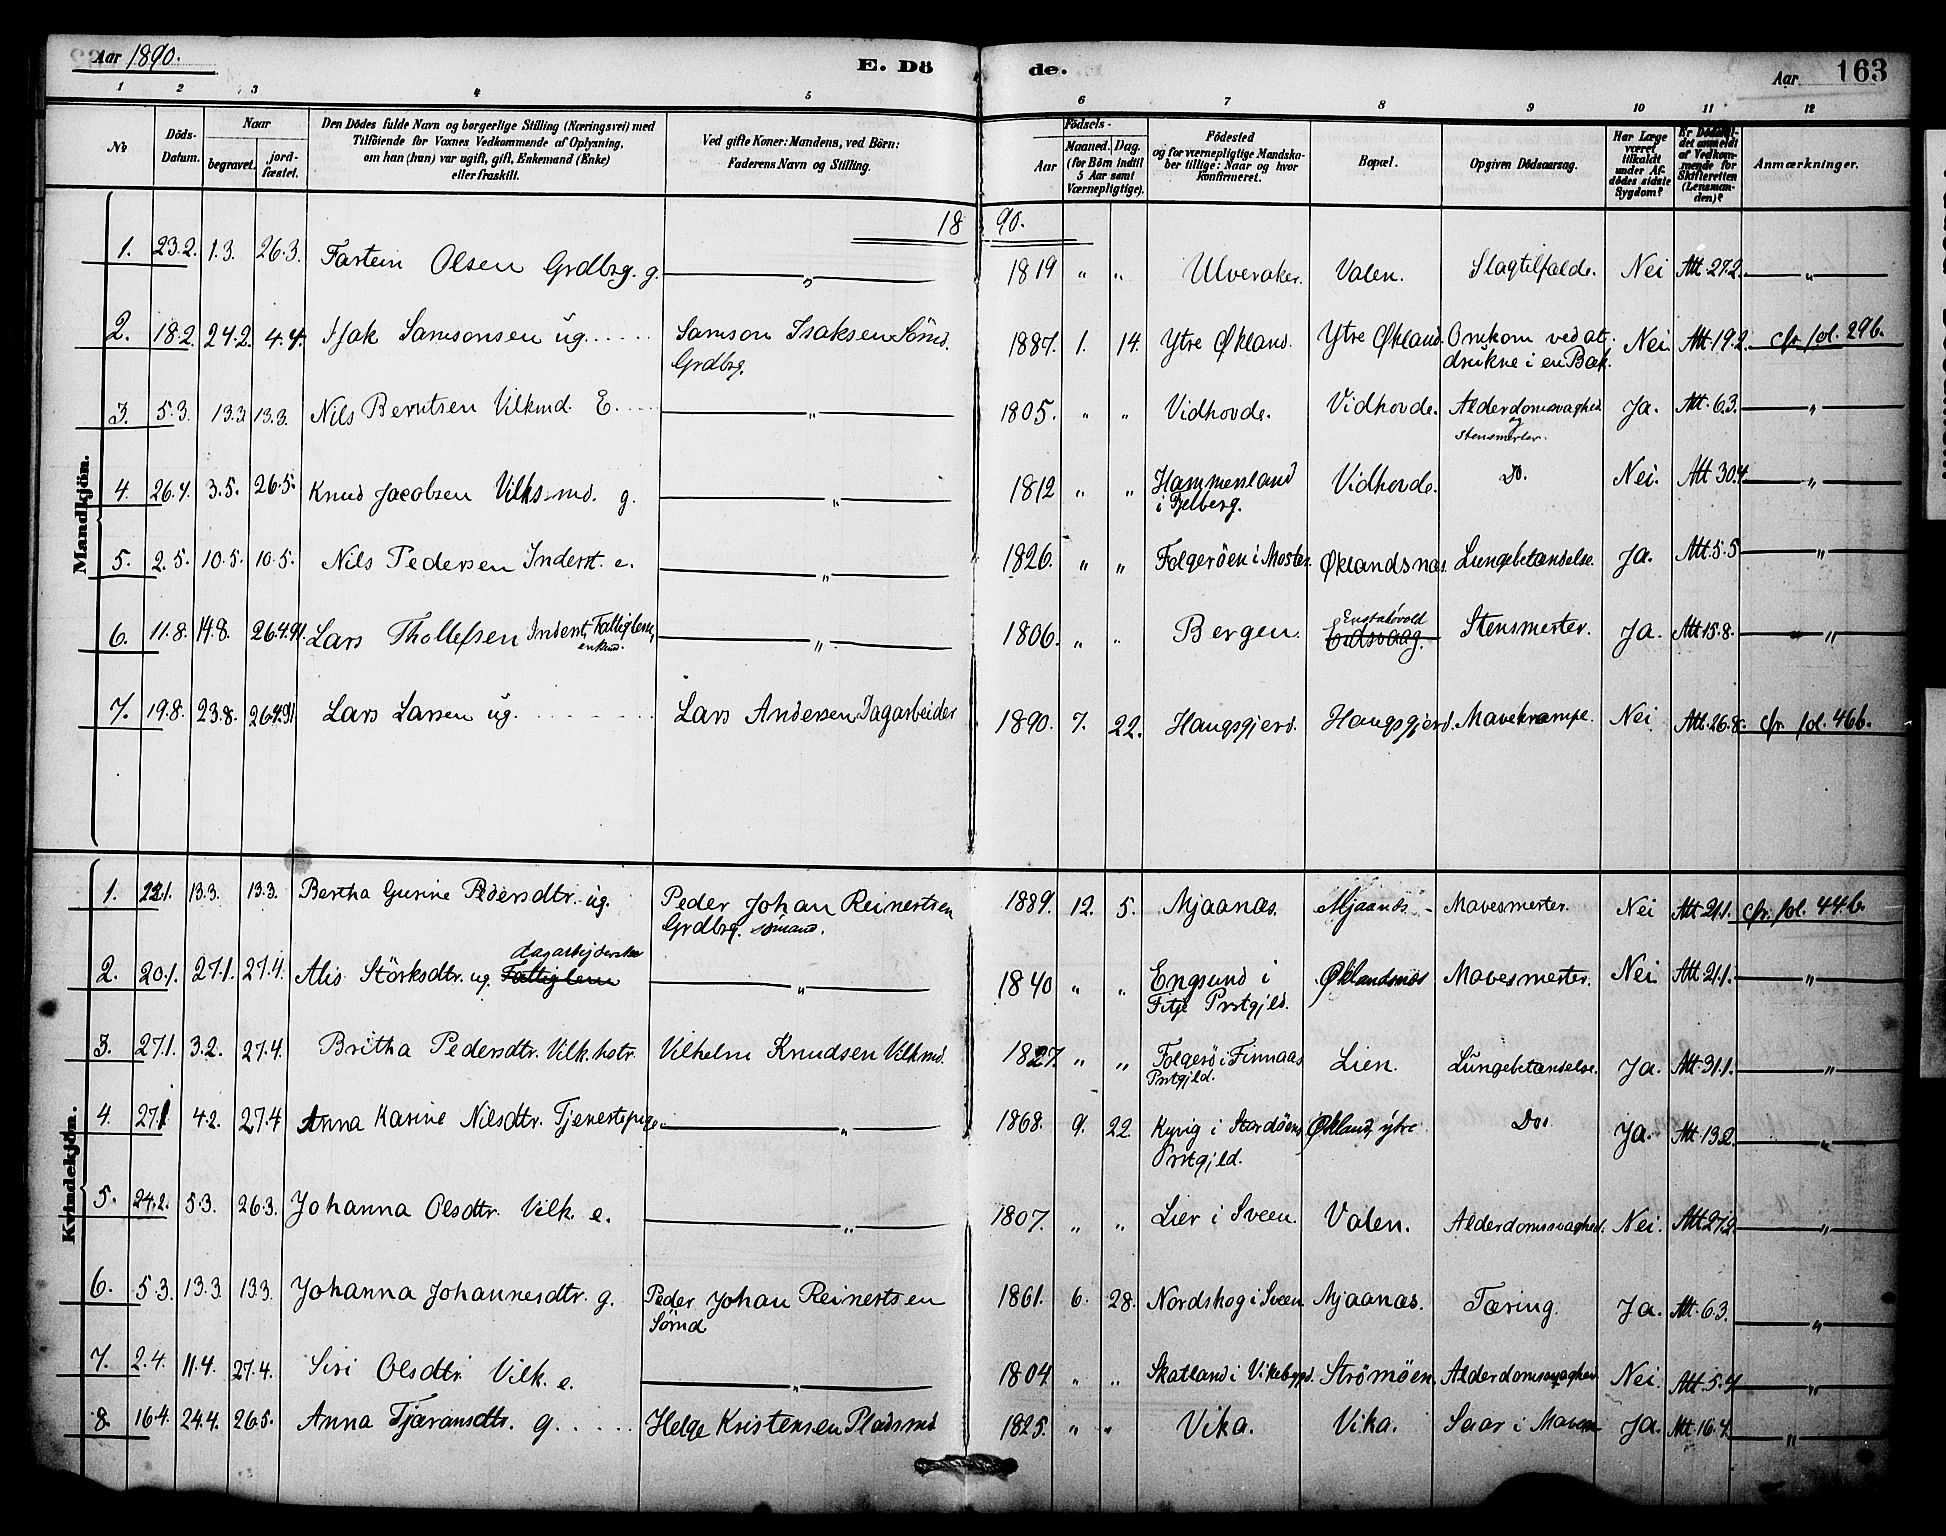 Aar 1890.
E. Döde.
Aar 163
1 2 3 4 5 6 7 8 9 10 11 12
No
Döds-Datum.
Naar
begravet.
jordfæstet.
Den Dödes fulde Navn og borgerlige Stilling (Næringsvei) med Tilföiende for Voxnes Vedkommende af Oplysning, om han (hun) var ugift, gift, Enkemand (Enke) eller fraskilt.
Ved gifte Koner: Mandens, ved Börn: Faderens Navn og Stilling.
Födsels-
Aar
Maaned. Dag.
(for Börn indtil 5 Aar samt Værnepligtige).
Födested og for værnepligtige Mandskaber tillige: Naar og hvor konfirmeret.
Bopæl.
Opgiven Dödsaarsag.
Har Læge været tilkaldt under Afdödes sidste Sygdom?
Er Dödsfaldet anmeldt af Vedkommende for Skifteretten (Lensmanden)?
Anmærkninger.
Mandkjön.
1890.
1. 23.2. 1.3. 26.3. Fartein Olsen Grdbrg. g. " 1819 " " Ulveraker. Valen. Slagtilfælde. Nei Att. 27.2. "
2. 18.2. 24.2. 4.4. Isak Samsonsen ug. Samson Isaksen Sömd. Grdbrg. 1887. 1. 14. Ytre Økland. Ytre Økland. Omkom ved at drukne i en Bæk. Nei Att. 19.2. cfr. fol. 29b.
3. 5.3. 13.3 13.3. Nils Berntsen Vilkmd. E. " 1805. " " Vidhovde. Vidhovde. Alderdomssvaghed og Stensmerter. Ja. Att. 6.3. "
4. 26.4. 3.5. 26.5. Knud Jacobsen Vilks.md. g. " 1812 " " Hammersland i Fjelberg. Vidhovde. Do. Nei. Att 30.4. "
5. 2.5. 10.5. 10.5. Nils Pedersen Inderst. e. " 1826. " " Folgeröen i Moster. Øklandsnæs. Lungebetændelse. Ja. Att. 5.5 "
6. 11.8. 14.8. 26.4.91. Lars Thollefsen Inderst, Fattiglem, enkmd. " 1806. " " Bergen. Eidsvaag. Stensmerter. Ja. Att 15.8. "
7. 19.8. 23.8. 26.4.91 Lars Larsen ug. Lars Andersen Dagarbeider 1890. 7. 22. Haugsgjerd. Haugsgjerd. Mavekrampe. Nei Att. 26.8. cfr. fol. 46b.
Kvindekjön.
1. 13.3. 13.3. Bertha Gurine Pedersdtr. ug. Peder Johan Reinertsen Grdbrg. sömand. 1889. 12. 5. Mjaanæs. Mjaanæs. Mavesmerter. Nei Att 21.1. cfr. fol. 44b.
2. 20.1. 27.1. 27.4. Alis Störksdtr. ug. Fattiglem dagarbejderske " 1840 " " Engsund i Fitje Prstgjld. Øklandsnæs Mavesmerter. Nei Att. 21.1. "
3. 27.1. 3.2. 27.4. Britha Pedersdtr. Vilk. hstr. Vilhelm Knudsen Vilkmd. 1827. " " Folgerö i Finnaas Prstgjld. Lien. Lungebetændelse. Ja. Att. 31.1. "
4. 27.1 4.2. 27.4 Anna Karine Nilsdtr. Tjenestepige. " 1868. 9. 22. Kyvig i Stordöens Prstgjld. Økland, ytre Do. Ja. Att. 13.2. "
5. 24.2. 5.3. 26.3. Johanna Olsdtr. Vilk. e. " 1807. " " Lier i Sveen. Valen. Alderdomssvaghed. Nei. Att 27.2. "
6. 5.3. 13.3. 13.3. Johanna Johannesdtr. g. Peder Johan Reinertsen Sömd 1861. 6. 28. Nordskog i Sveen Mjaanæs. Tæring. Ja. Att. 6.3. "
7. 2.4. 11.4. 27.4. Siri Olsdtr. Vilk. e. " 1804. " " Skatland i Vikebygd. Strømöen. Alderdomssvaghed. Nei. Att. 5.4 "
8. 16.4. 24.4. 26.5. Anna Tjæransdtr. g. Helge Kristensen Pladsmd 1825. " " Vika. Vika. Saar i Maven Ja. Att. 16.4. "